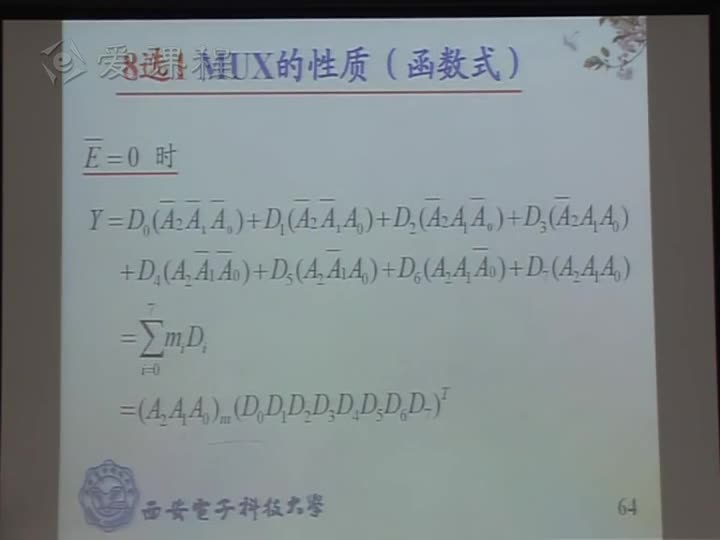 爱课程
8选1 MUX的性质（函数式）
E̅=0 时
Y=D₀(A̅₂A̅₁A̅₀)+D₁(A̅₂A̅₁A₀)+D₂(A̅₂A₁A̅₀)+D₃(A̅₂A₁A₀)
+D₄(A₂A̅₁A̅₀)+D₅(A₂A̅₁A₀)+D₆(A₂A₁A̅₀)+D₇(A₂A₁A₀)
=∑_{i=0}^{7} mᵢDᵢ
=(A₂A₁A₀)ₘ(D₀D₁D₂D₃D₄D₅D₆D₇)ᵀ
西安电子科技大学
64